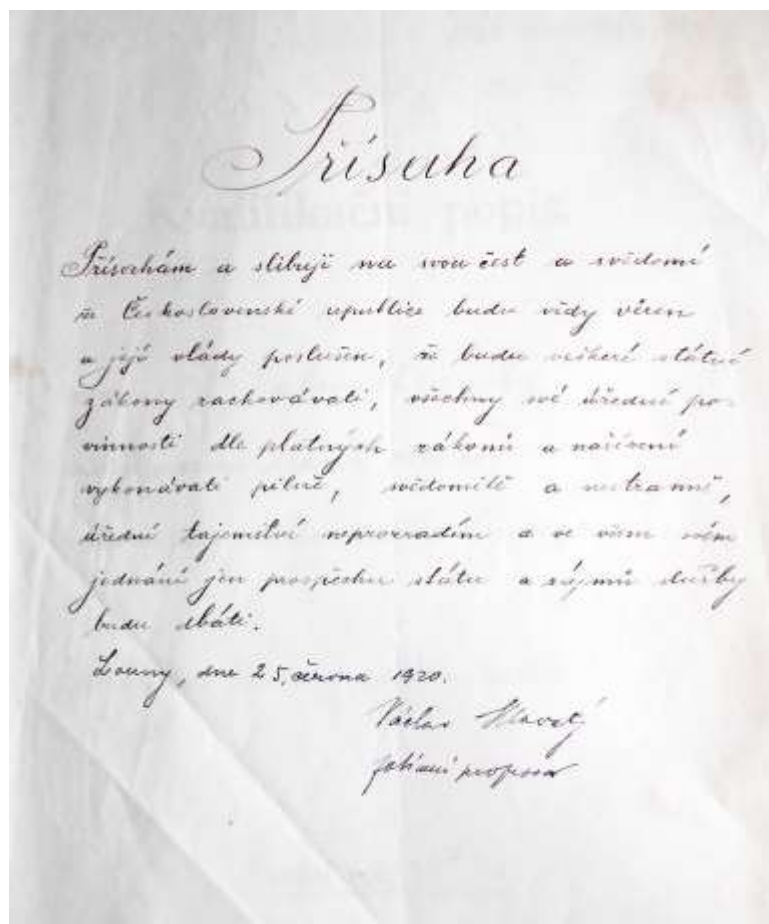 Přísaha
Přísahám a slibuji na svou čest a svědomí
že Československé republice budu vždy věren
a její vlády poslušen, že budu veškeré státní
zákony zachovávati, všechny své úřední po-
vinnosti dle platných zákonů a nařízení
vykonávati pilně, svědomitě a nestranně,
úřední tajemství neprozradím a ve všem svém
jednání jen prospěchu státu a zájmů služby
budu dbáti.
Louny, dne 25. června 1920.
Václav
professor